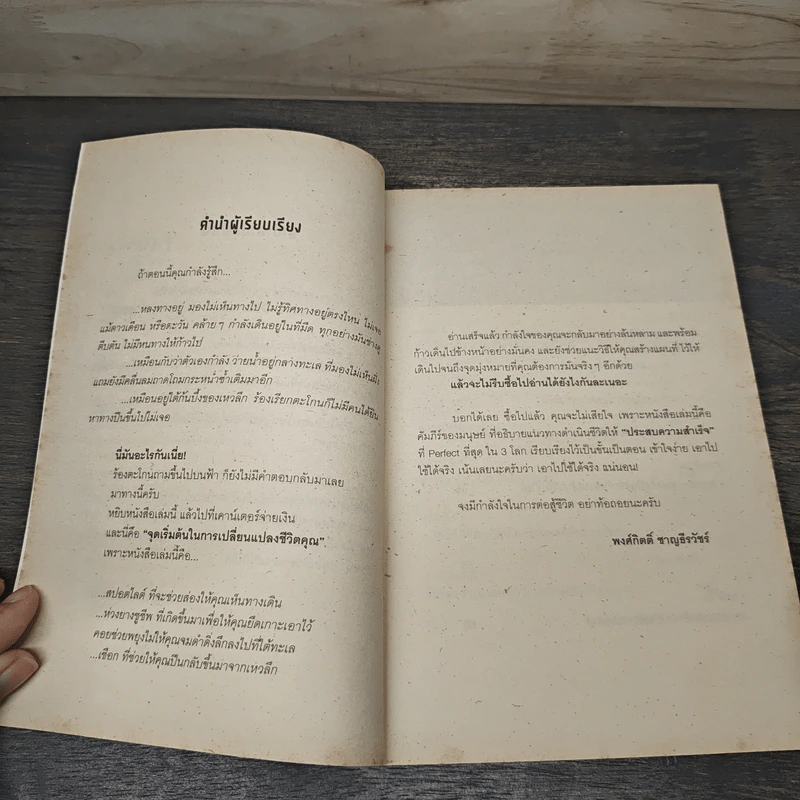 คำนำผู้เรียบเรียง
ถ้าตอนนี้คุณกำลังรู้สึก...
...หลงทางอยู่ มองไม่เห็นทางไป ไม่รู้ทิศทางอยู่ตรงไหน ไม่เจอ
แม้ดาวเดือน หรือตะวัน คล้ายๆ กำลังเดินอยู่ในที่มืด ทุกอย่างมันช่างดู
ตีบตัน ไม่มีหนทางให้ก้าวไป
...เหมือนกับว่าตัวเองกำลัง ว่ายน้ำอยู่กลางทะเล ที่มองไม่เห็นฝั่ง
แถมยังมีคลื่นลมถาดโถมกระหน่ำซ้ำเติมมาอีก
...เหมือนอยู่ใต้ก้นบึ้งของเหวลึก ร้องเรียกตะโกนก็ไม่มีคนได้ยิน
หาทางปีนขึ้นไปไม่เจอ
นี่มันอะไรกันเนี่ย!
ร้องตะโกนถามขึ้นไปบนฟ้า ก็ยังไม่มีคำตอบกลับมาเลย
มาทางนี้ครับ
หยิบหนังสือเล่มนี้ แล้วไปที่เคาน์เตอร์จ่ายเงิน
และนี่คือ "จุดเริ่มต้นในการเปลี่ยนแปลงชีวิตคุณ"
เพราะหนังสือเล่มนี้คือ...
...สปอตไลต์ ที่จะช่วยส่องให้คุณเห็นทางเดิน
...ห่วงยางชูชีพ ที่เกิดขึ้นมาเพื่อให้คุณยึดเกาะเอาไว้
คอยช่วยพยุงไม่ให้คุณจมดำดิ่งลึกลงไปที่ใต้ทะเล
...เชือก ที่ช่วยให้คุณปีนกลับขึ้นมาจากเหวลึก
อ่านเสร็จแล้ว กำลังใจของคุณจะกลับมาอย่างล้นหลาม และพร้อม
ก้าวเดินไปข้างหน้าอย่างมั่นคง และยังช่วยแนะวิธีให้คุณสร้างแผนที่ ไว้ให้
เดินไปจนถึงจุดมุ่งหมายที่คุณต้องการมันจริงๆ อีกด้วย
แล้วจะไม่รีบซื้อไปอ่านได้ยังไงกันละเนอะ
บอกได้เลย ซื้อไปแล้ว คุณจะไม่เสียใจ เพราะหนังสือเล่มนี้คือ
คัมภีร์ของมนุษย์ ที่อธิบายแนวทางดำเนินชีวิตให้ "ประสบความสำเร็จ"
ที่ Perfect ที่สุด ใน 3 โลก เรียบเรียงไว้เป็นขั้นเป็นตอน เข้าใจง่าย เอาไป
ใช้ได้จริง เน้นเลยนะครับว่า เอาไปใช้ได้จริง แน่นอน!
จงมีกำลังใจในการต่อสู้ชีวิต อย่าท้อถอยนะครับ
พงศ์กิตติ์ ชาญธีรวัชร์